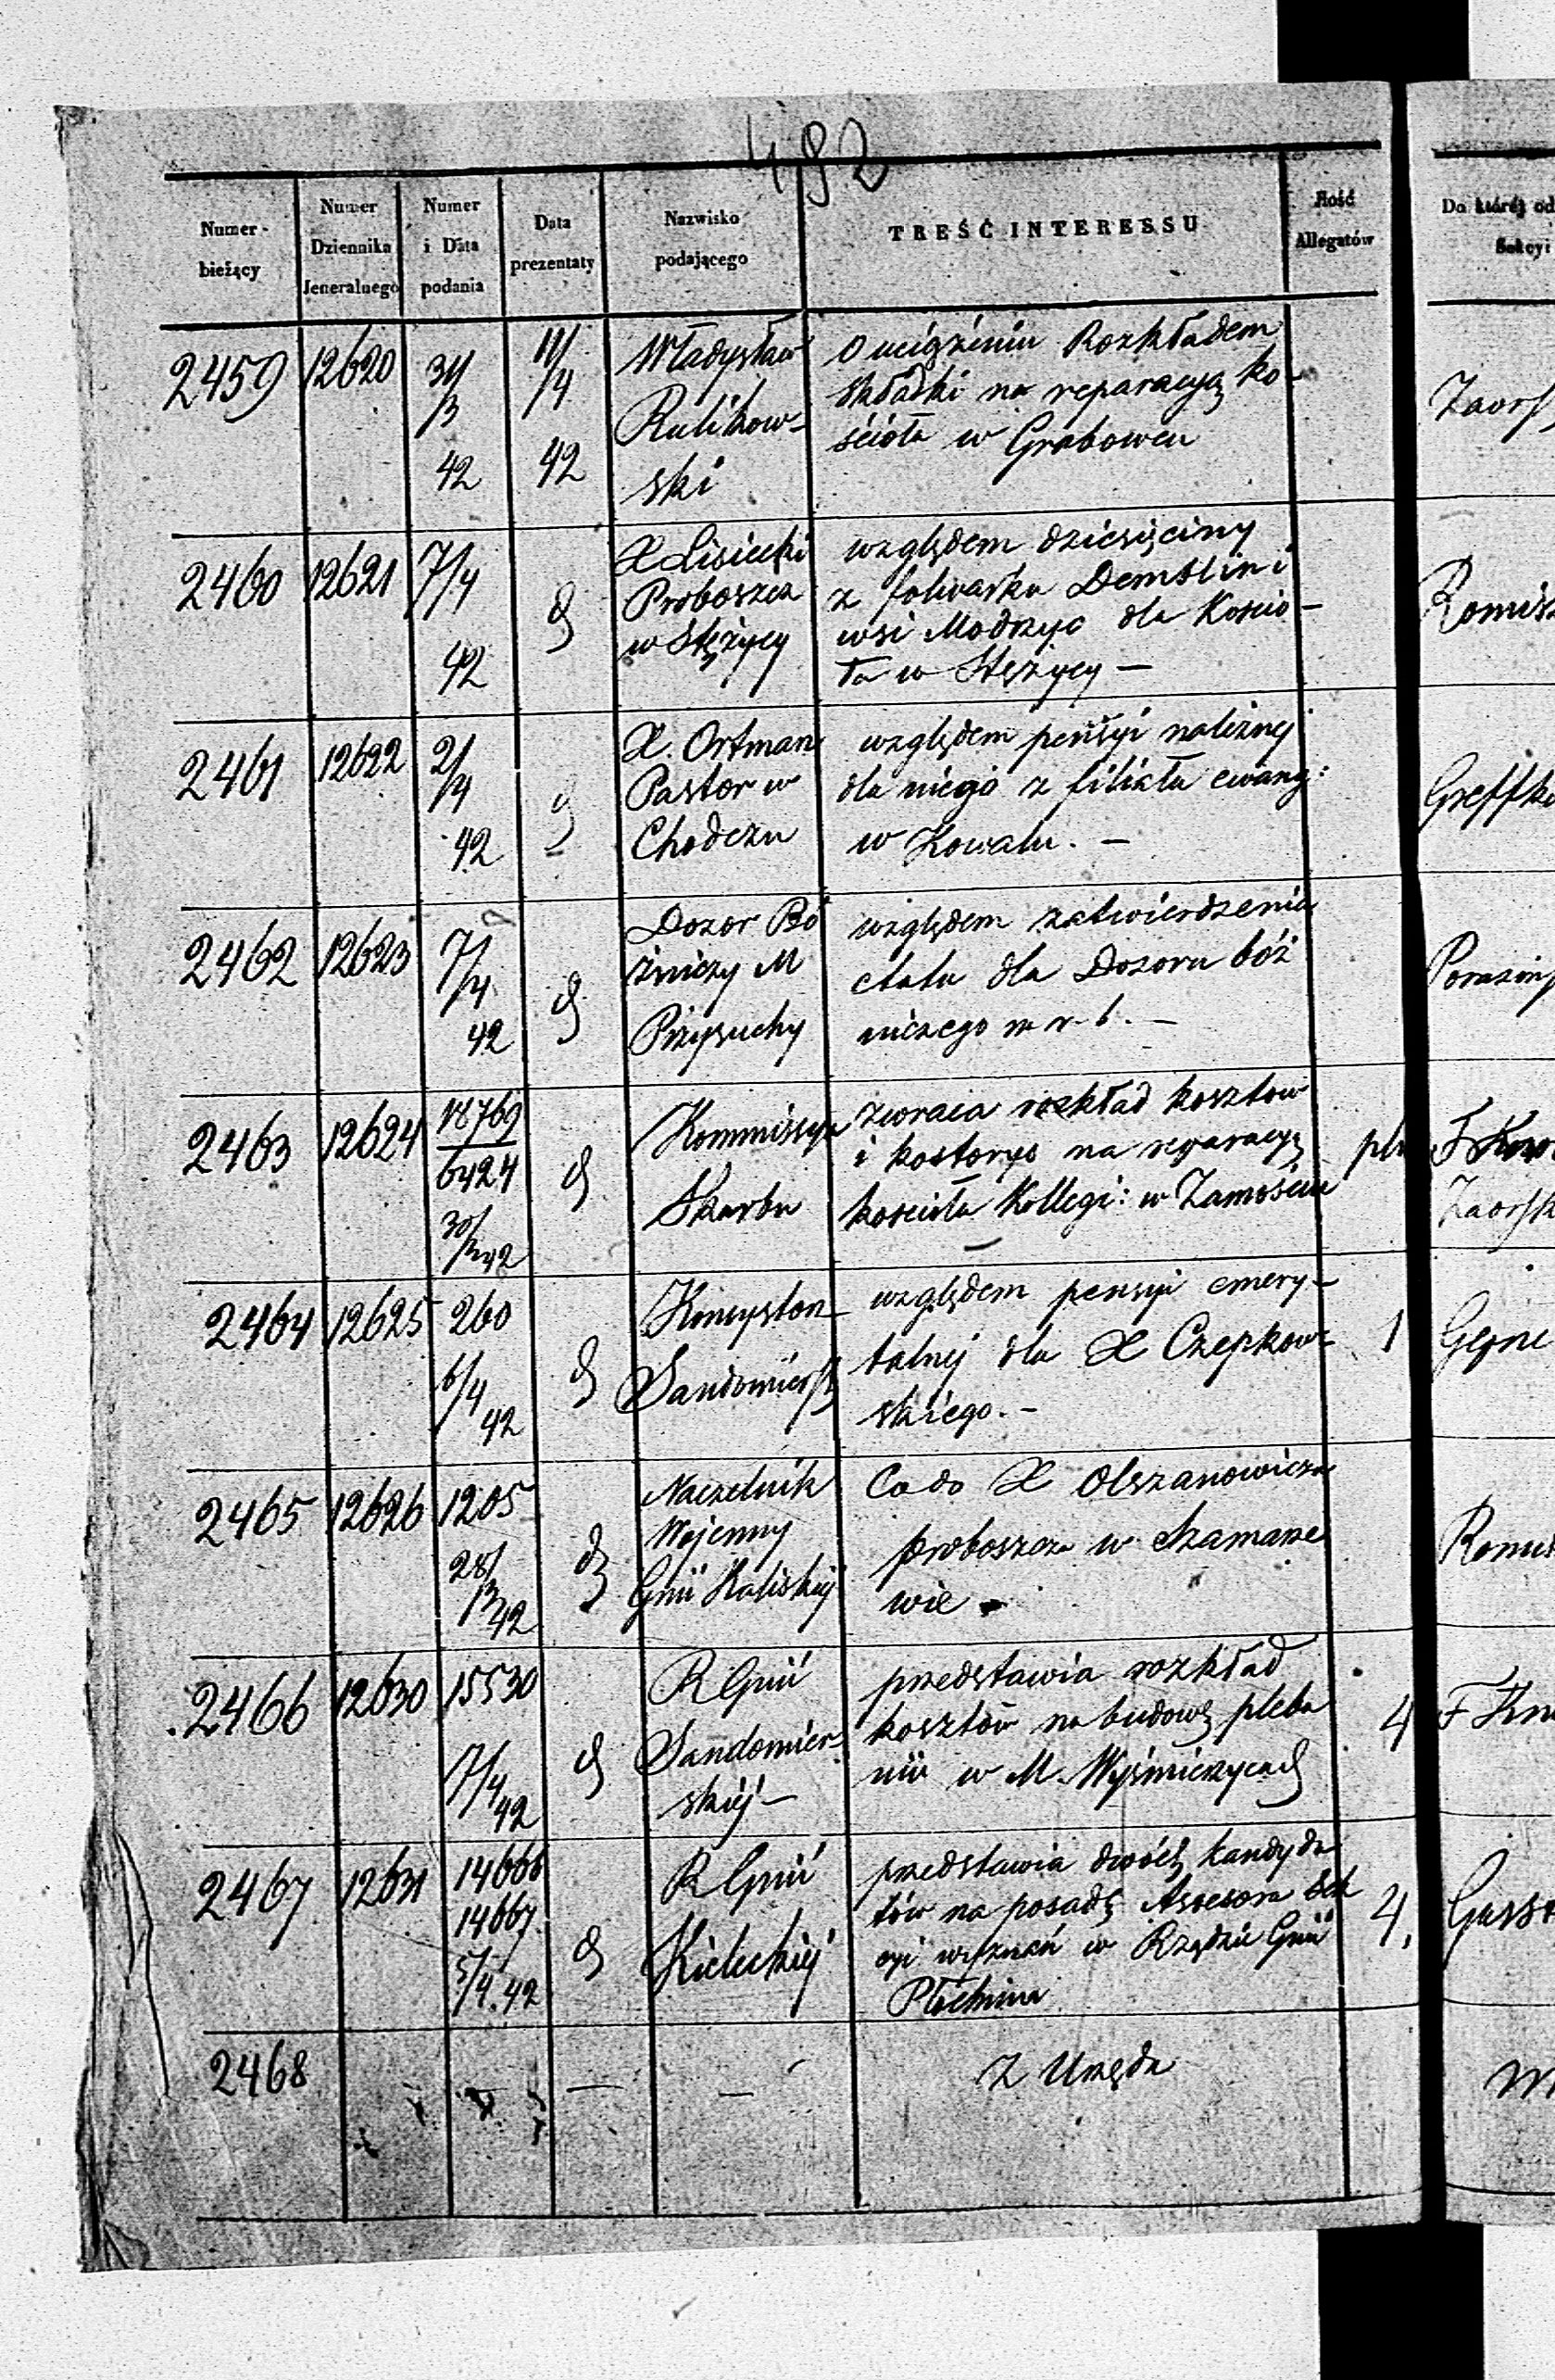 492
Numer bieżący
Numer Dziennika Jeneralnego
Numer i Data podania
Data prezentaty
Nazwisko podającego
TREŚĆ INTERESSU
Ilość Allegatów
Do któréj od
Sekcyi
2459 12620 31/3 42 11/4 42
Władysław
Rulikow-
ski
O uciążeniu Rozkładem
składki na reparacyą ko-
ścioła w Grabowcu
2460 12621 7/4 42
X Lisiecki
Proboszcz
w Stężycy
względem dziesięciny
z folwarku Demblin i
wsi Modrzyc dla Kościo-
ła w Stężycy —
2461 12622 2/4 42
X. Ortman
Pastor w
Chodczu
względem pensyi należnej
dla niego z filiału ewang:
w Kowalu. —
2462 12623 7/4 42
Dozor Bó
żniczy M
Przysuchy
względem zatwierdzenia
etatu dla Dozoru bóż
niczego na r. b. —
2463 12624 18769/6424 30/3 42
Kommissya
Skarbu
zwraca rozkład kosztow
i kostorys na reparacyą
kościoła Kollegi: w Zamościu
2464 12625 260 6/4 42
Konsystorz
Sandomiersk
względem pensyi emery-
talnej dla X Czepkow-
skiego. —
1
2465 12626 1205 28/3 42
Naczelnik
Wojenny
Gnii Kaliskiej
Co do X Olszanowicza
proboszcza w Szamane
wie
2466 12630 15530 7/4 42
R Gnii
Sandomier-
skiéj —
przedstawia rozkład
kosztów na budowę pleba
nii w M. Wyśmierzycach
4
2467 12631 14666
14667
5/4. 42
R Gnii
Kieleckiéj
przedstawia dwóch kandyda
tów na posadę Assesora Sek
cyi wyznań w Rządzie Gnii
4,
2468 — — — Z Urzędu